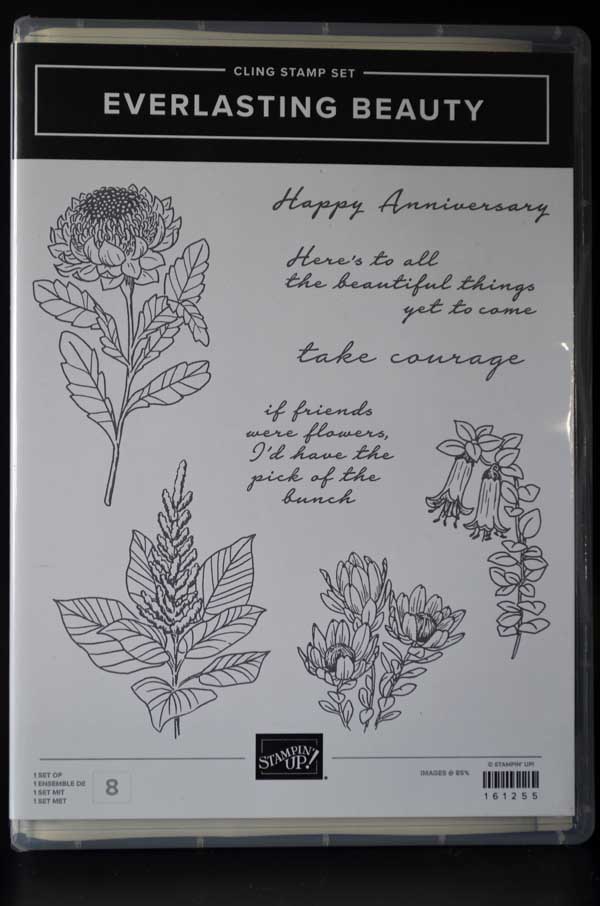 CLING STAMP SET
EVERLASTING BEAUTY
Happy Anniversary
Here's to all
the beautiful things
yet to come
take courage
if friends
were flowers,
I'd have the
pick of the
bunch
STAMPIN'
UP!
1 SET OF
1 ENSEMBLE DE
1 SET MIT
1 SET MET
8
IMAGES @ 85%
© STAMPIN' UP!
161255